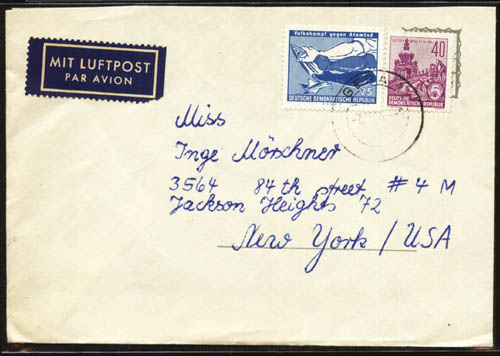 MIT LUFTPOST
PAR AVION
Volkskampf gegen Atomtod
25
DEUTSCHE DEMOKRATISCHE REPUBLIK
40
DEUTSCHE
DEMOKRATISCHE REPUBLIK
Miss
Inge Mörschner
3564 84th street # 4 M
Jackson Heights 72
New York / USA